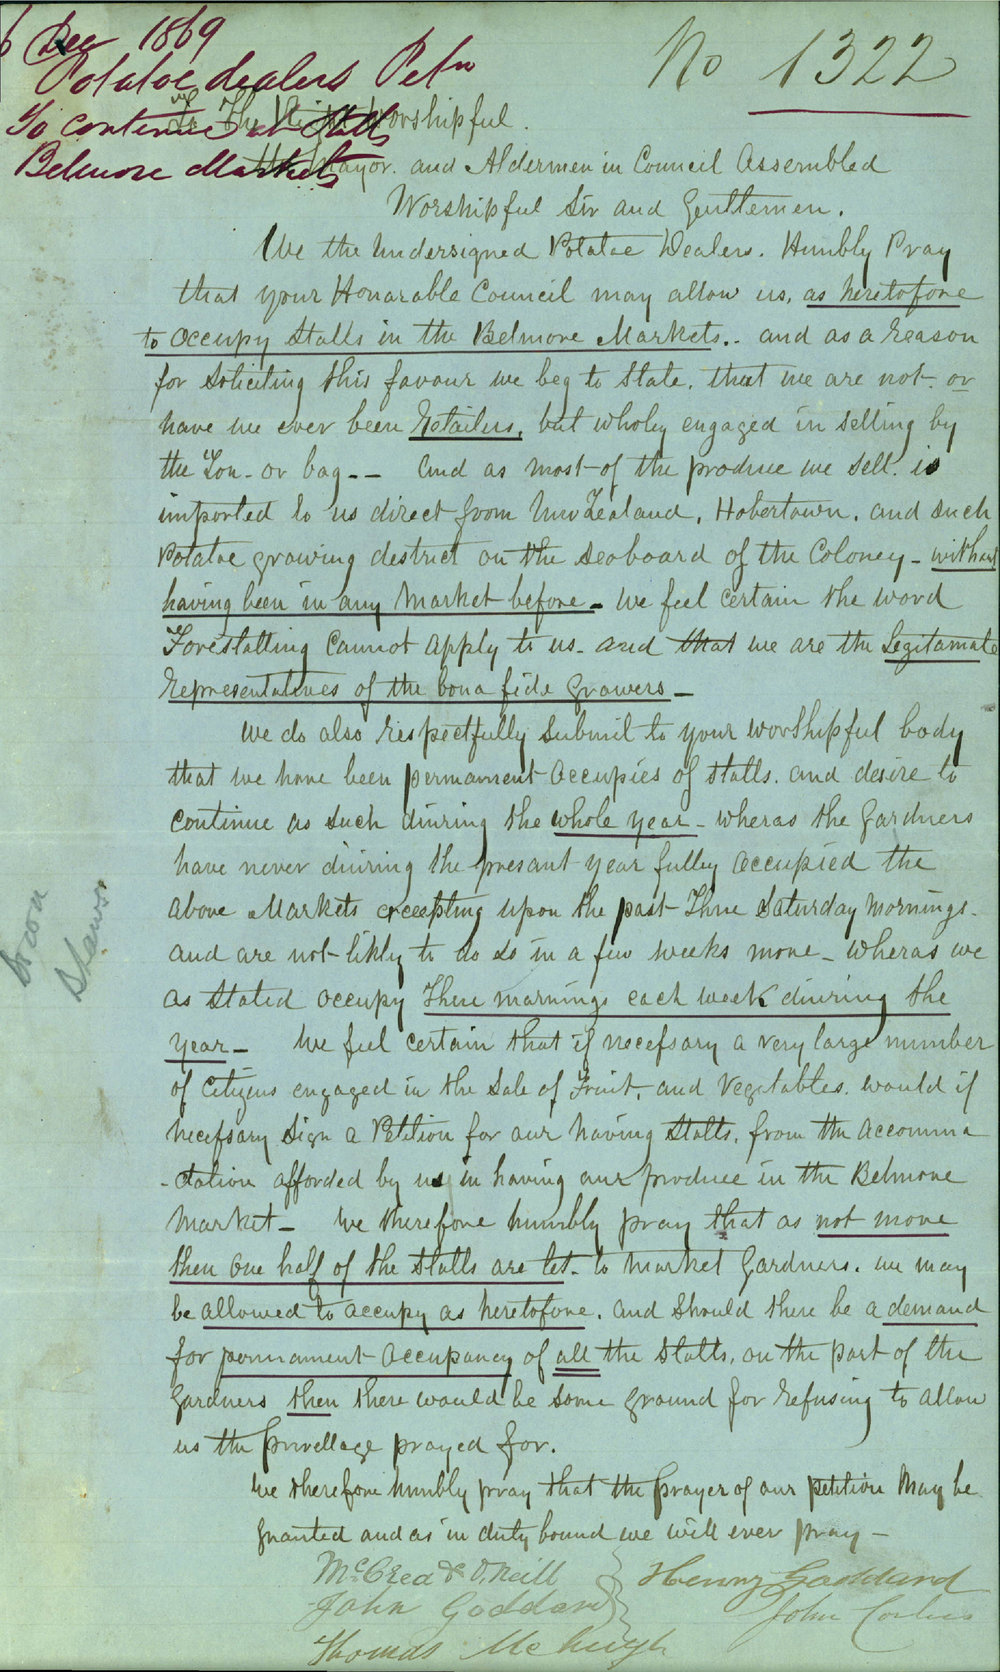 6 Dec 1869
No 1322
Potatoe dealers Petn
To continue at Stalls
Belmore Markets
To The Worshipful.
the Mayor. and Aldermen in Council Assembled
Worshipful Sir and Gentlemen.
We the Undersigned Potatoe Dealers. Humbly Pray
that your Honarable Council may allow us, as heretofore
to occupy Stalls in the Belmore Markets.. and as a reason
for Soliciting this favour we beg to State. that we are not. or
have we ever been Retailers, but wholey engaged in selling by
the Ton - or bag - - And as most of the produce we sell. is
imported to us direct from New Zealand, Hobertown. and such
Potatoe growing destrict on the Seaboard of the Coloney - without
having been in any Market before - we feel certain the word
Forestalling Cannot apply to us - and that we are the Legitamate
Representatives of the bona fide growers -
We do also respectfully Submit to your worshipful body
that we have been permament occupies of stalls. and desire to
continue as such duiring the whole year - wheras the Gardners
have never duiring the presant year fulley occupied the
above Markets excepting upon the past Three Saturday mornings -
and are not likly to do so in a few weeks more - wheras we
as stated occupy three mornings each week duiring the
year - We feel certain that if necessary a very large number
of Citizens engaged in the Sale of Fruit, and Vegetables. would if
necessary Sign a Petition for our having Stalls, from the accomma
-dation afforded by us in having our produce in the Belmore
Market - We therefore humbly pray that as not more
then one half of the Stalls are let - to Market Gardners. we may
be allowed to occupy as heretofore. and Should there be a demand
for permament occupancy of all the Stalls, on the part of the
Gardners then there would be some ground for refusing to allow
us the privellage prayed for.
We therefore humbly pray that the prayer of our petition May be
granted and as in duty bound we will ever pray -
McCrea & O'Neill
Henry Goddard
John Goddard
John
Thomas McHugh